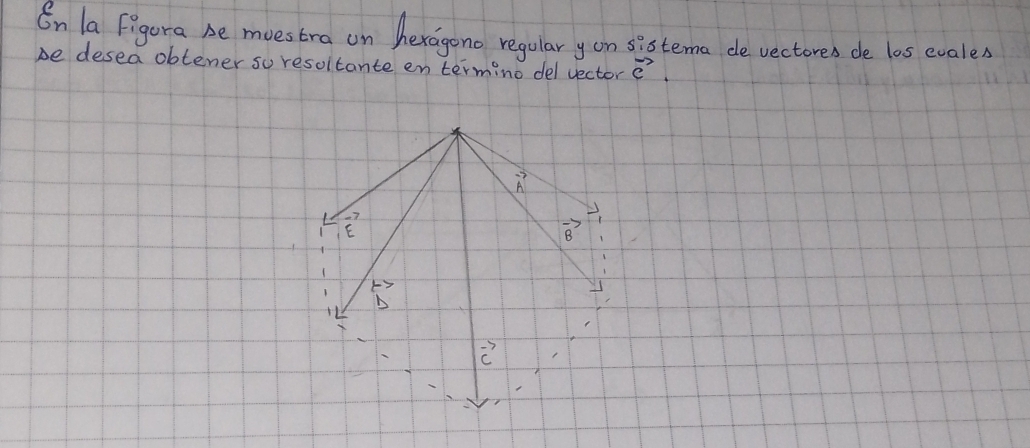 En la figura se muestra un hexágono regular y un sistema de vectores de los cuales
se desea obtener su resultante en término del vector c⃗.
A⃗
E⃗
B⃗
D⃗
C⃗